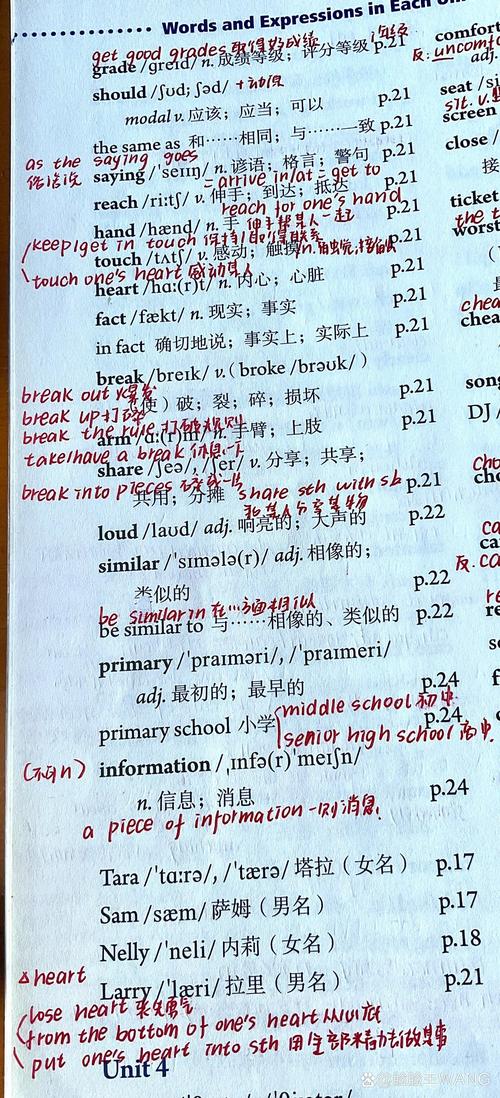 Words and Expressions in Each Un
get good grades 取得好成绩
grade /greɪd/ n. 成绩等级；评分等级 p.21
comfort
反: uncomfo
adj.
should /ʃud; ʃəd/ +动原
modal v. 应该；应当；可以 p.21
seat /si
sit. v.
the same as 和……相同；与……一致 p.21
screen
as the saying goes
俗话说
saying /ˈseɪɪŋ/ n. 谚语；格言；警句 p.21
close /
= arrive in/at = get to
reach /riːtʃ/ v. 伸手；到达；抵达 p.21
接
reach for one's hand
hand /hænd/ n. 手 p.21
ticket
keep/get in touch 保持/取得联系
the t
touch /tʌtʃ/ v. 感动；触摸 p.21
worst
touch one's heart 感动某人
heart /hɑː(r)t/ n. 内心；心脏 p.21
fact /fækt/ n. 现实；事实 p.21
chea
in fact 确切地说；事实上；实际上 p.21
chea
break /breɪk/ v. (broke /brəuk/)
break out 爆发
（使）破；裂；碎；损坏 p.21
song
break up 打碎
break the rule 打破规则
arm /ɑː(r)m/ n. 手臂；上肢 p.21
DJ /
take/have a break 休息一下
share /ʃeə/, /ʃer/ v. 分享；共享；
break into pieces
共用；分摊 p.21
share sth with sb
和某人分享某物
cho
loud /laud/ adj. 响亮的；大声的 p.22
ca
similar /ˈsɪmələ(r)/ adj. 相像的；
反. ca
类似的 p.22
be similar in 在…方面相似
be similar to 与……相像的、类似的 p.22
re
primary /ˈpraɪməri/, /ˈpraɪmeri/
adj. 最初的；最早的 p.24
middle school 初中
primary school 小学 p.24
senior high school 高中
(不可n)
information /ˌɪnfə(r)ˈmeɪʃn/
n. 信息；消息 p.24
a piece of information 一则消息
Tara /ˈtɑːrə/, /ˈtærə/ 塔拉（女名） p.17
Sam /sæm/ 萨姆（男名） p.17
Nelly /ˈneli/ 内莉（女名） p.18
△heart
Larry /ˈlæri/ 拉里（男名） p.21
lose heart 丧失勇气
from the bottom of one's heart 从心底
put one's heart into sth 用全部精力做某事
Unit 4